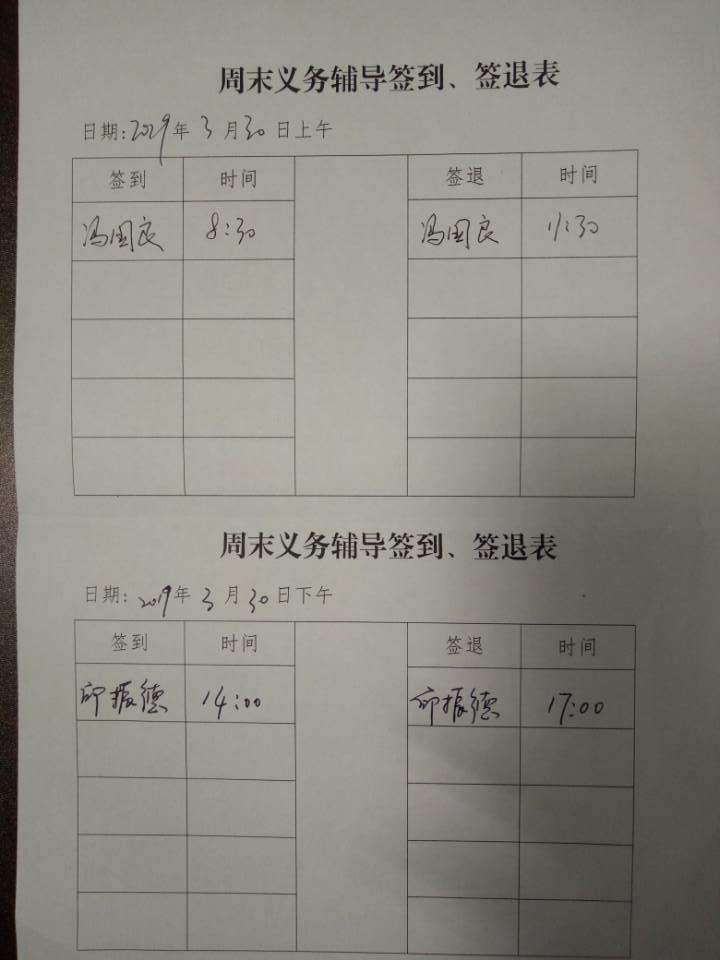 周末义务辅导签到、签退表
日期:2019年3月30日上午
签到 时间 签退 时间
冯国良 8:30 冯国良 11:30
周末义务辅导签到、签退表
日期:2019年3月30日下午
签到 时间 签退 时间
邱振德 14:00 邱振德 17:00